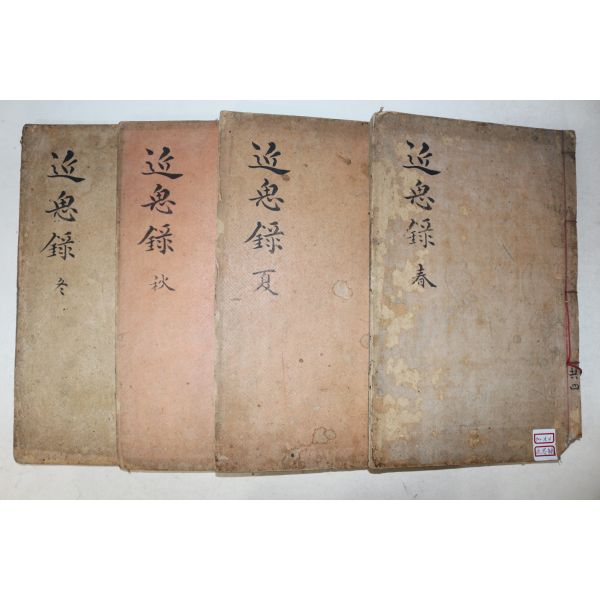 近思錄 春
共四
近思錄 夏
近思錄 秋
近思錄 冬